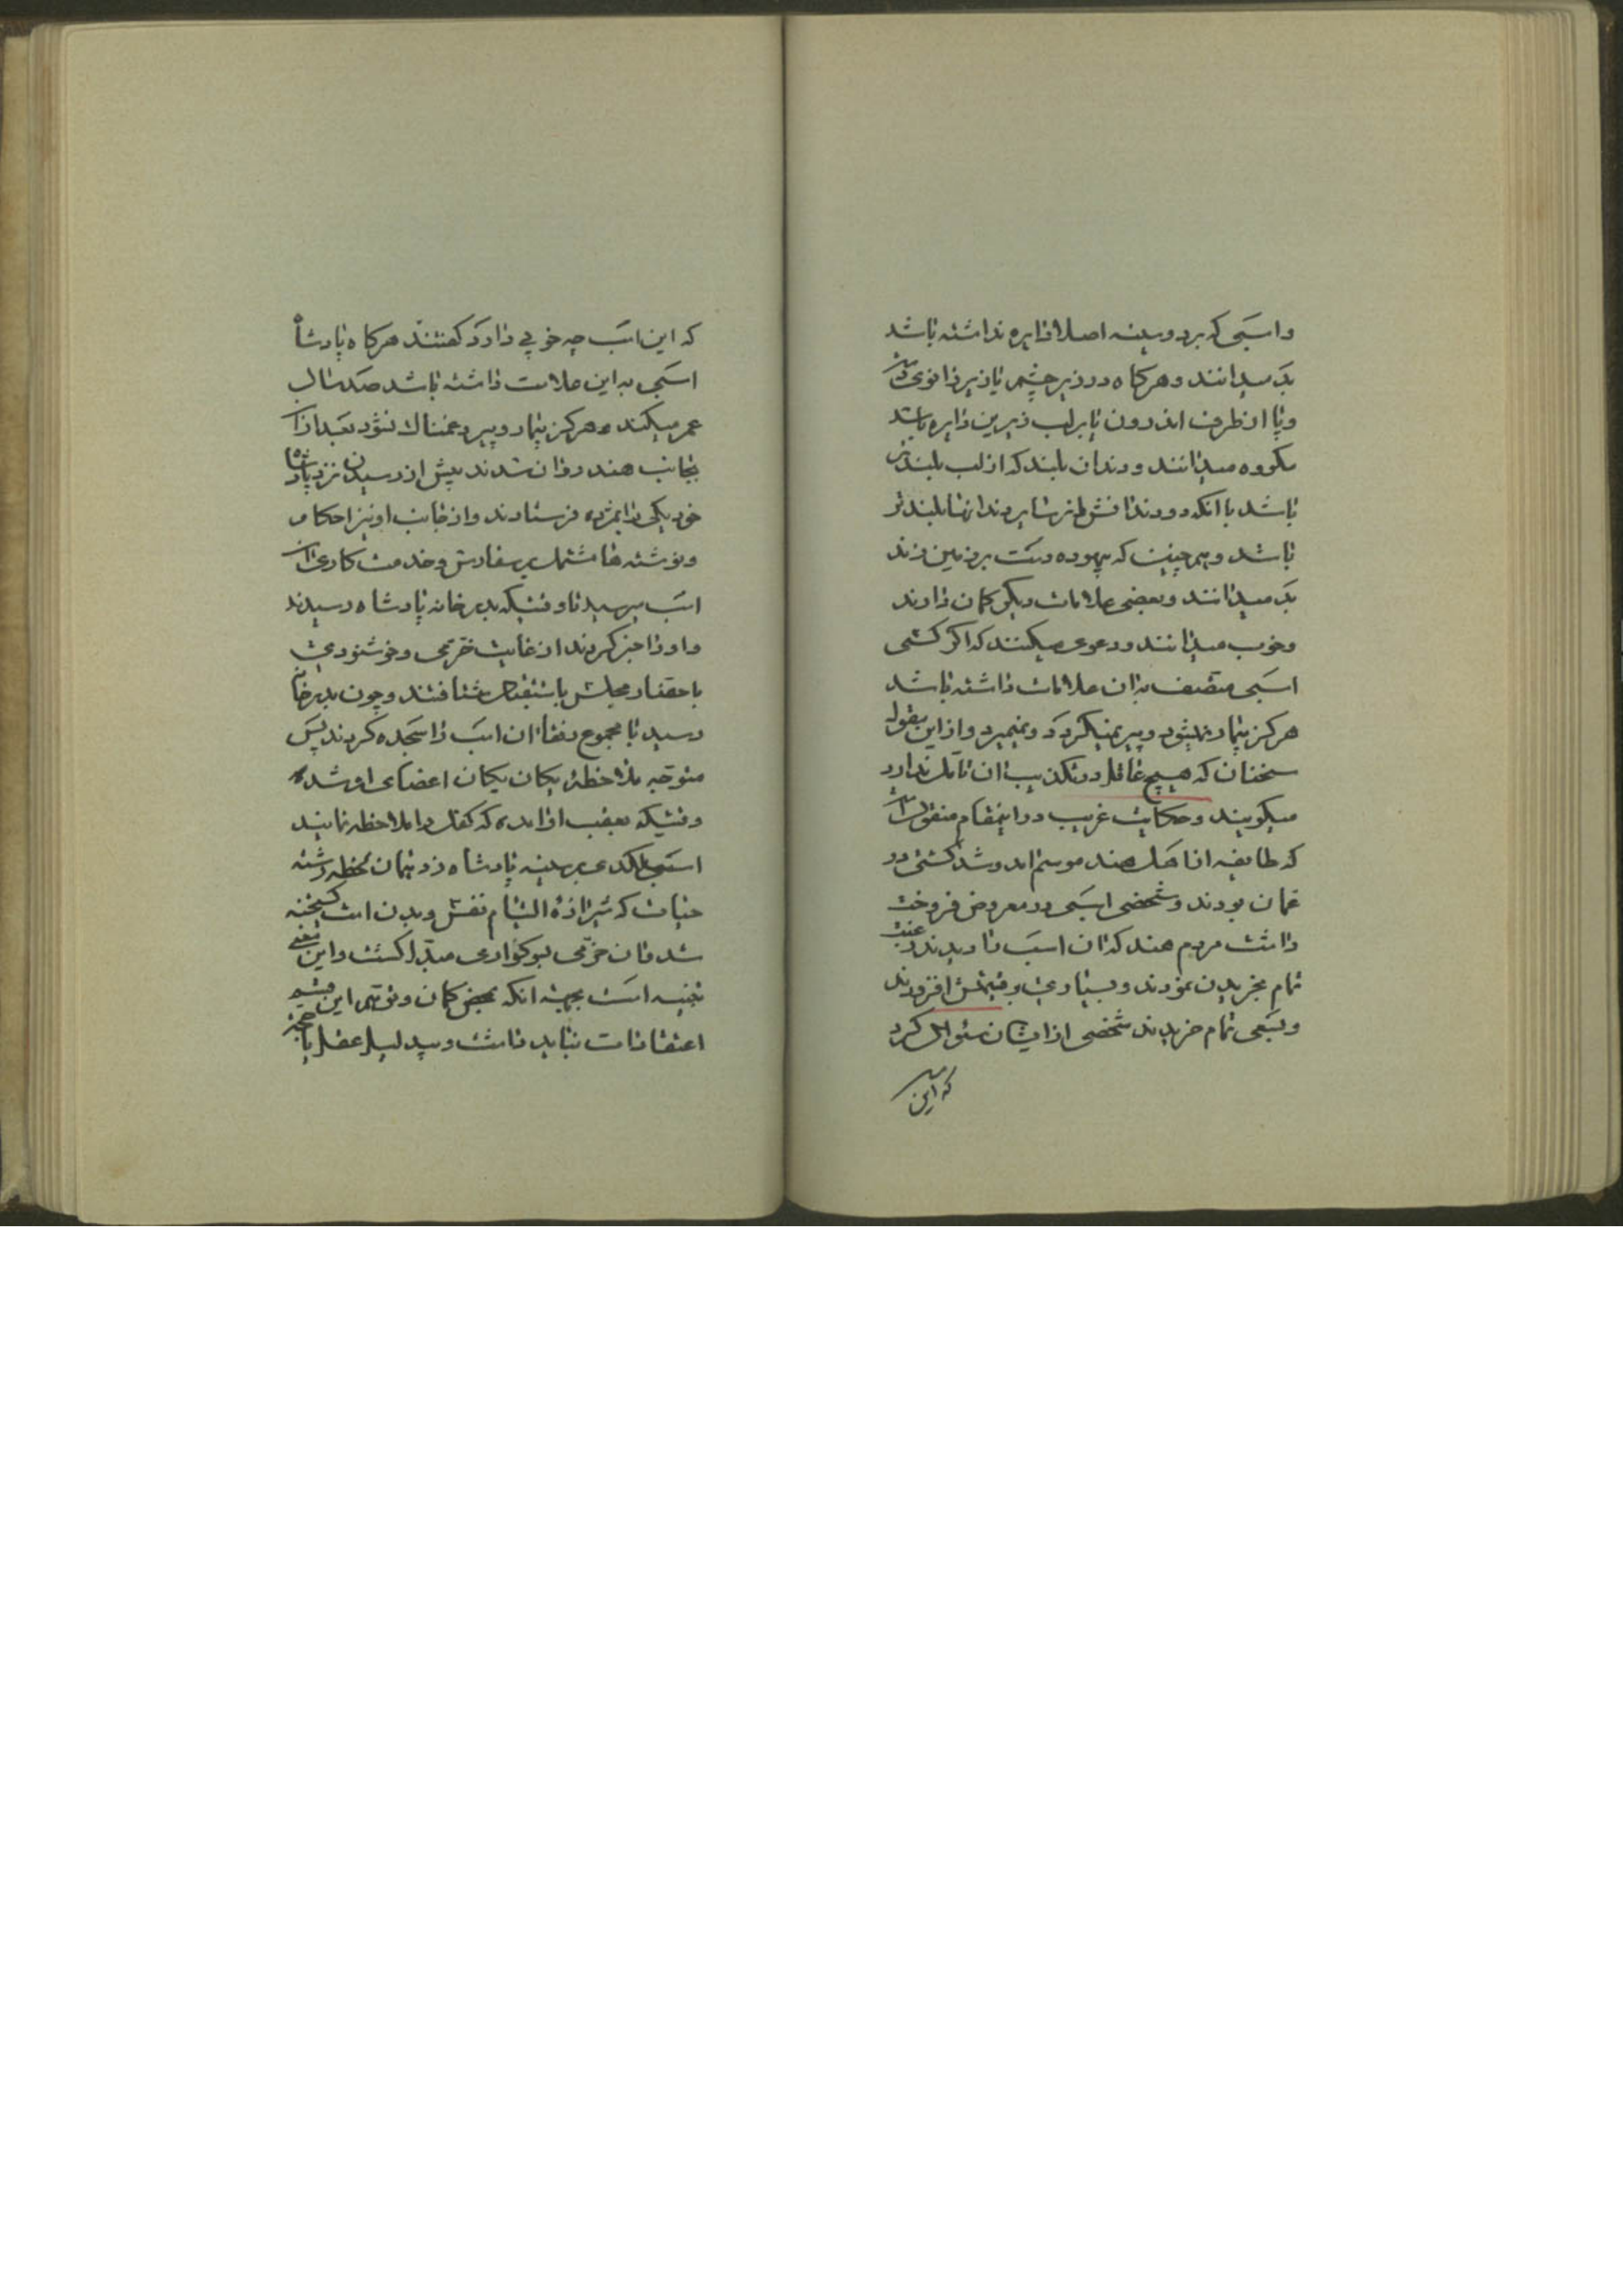 و اسبی که بر دو سینه اصلا دایره نداشته باشد
بد میدانند و هرگاه در زیر چشم یا زیر زانوی دست
و پا از طرف اندرون یا بر لب زیرین دایره باشد
مکروه میدانند و دندان بلند که از لب بلندتر
باشد یا انکه دو دندانش از سایر دندانها بلندتر
باشد و همچنین که بیهوده دست بر زمین زند
بد میدانند و بعضی علامات دیگر گمان دارند
و خوب میدانند و دعوی میکنند که اگر کسی
اسبی متصف بدان علامات داشته باشد
هرگز بیمار نمیشود و پیر نمیگردد و نمیمیرد و از این مقوله
سخنان که هیچ عاقل در تکذیب ان تامل ندارد
میگویند و حکایت غریب در اینمقام منقول است
که طایفه از اهل هند موسم امد و شد کشتی در
عمان بودند و شخصی اسبی در معرض فروخت
داشت مردم هند که ان اسب را دیدند رغبت
تمام بخریدن نمودند و بسیاری بر قیمتش افزودند
و بسعی تمام خریدند شخصی از ایشان سئوال کرد
که این
که این اسب چه خوبی دارد گفتند هرگاه پادشاه
اسبی به این علامت داشته باشد صد سال
عمر میکند و هرگز بیمار و پیر و غمناک نشود بعد از ان
بجانب هند روان شدند پیش از رسیدن نزد پادشاه
خود یکی را بمژده فرستادند و از جانب او نیز احکام
و نوشته ها مشتمل بر سفارش و خدمت کاری ان
اسب میرسید تا وقتیکه بدرخانه پادشاه رسیدند
و او را خبر کردند از غایت خرمی و خوشنودی
با حضار مجلس باستقبال شتافتند و چون بدرخانه
رسید با مجموع رفقا ان اسب را سجده کردند پس
متوجه ملاحظه یکان یکان اعضای او شده
وقتیکه بعقب او امده که کفل را ملاحظه نمایند
اسب لگدی بر سینه پادشاه زد همان لحظه رشته
حیات که شیرازه التیام نفس و بدن است گسیخته
شد و ان خرمی بسوگواری مبدل گشت و این معنی
تنبیه است بجهة انکه بمحض گمان و توهم این قسم
اعتقادات نباید داشت و بیدلیل عقل یا